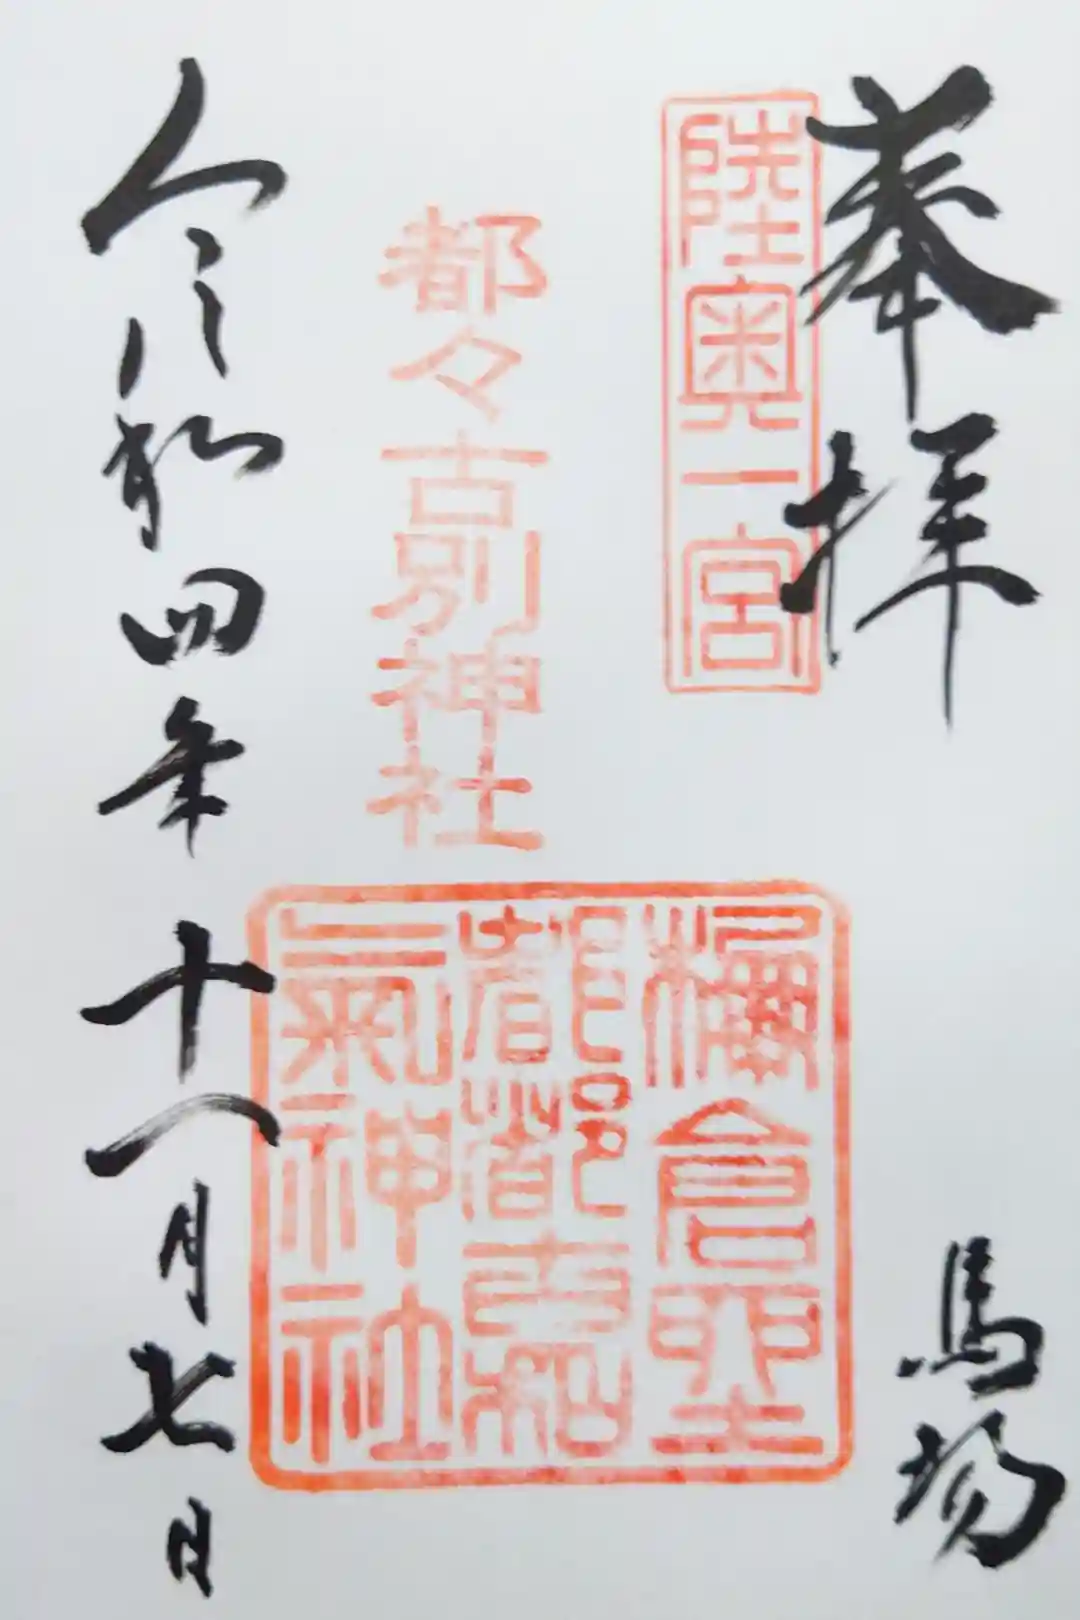 奉拝
馬場
陸奥一宮
都々古別神社
都都古和
氣神社
令和四年十一月七日